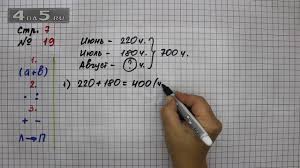 4da5.ru
Стр. 7
№ 19
Июнь - 220 ч.
Июль - 180 ч.
Август - ? ч.
700 ч.
1.
(а+в)
2.
· :
3.
+ -
Л → П
1) 220 + 180 = 400 (ч